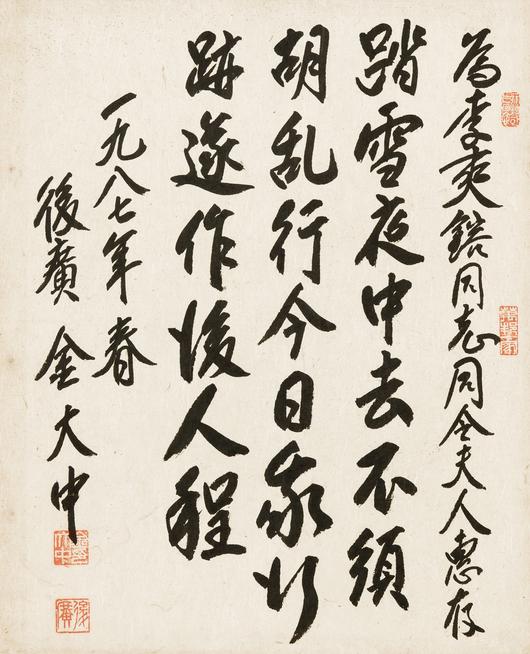 為李同志同令夫人惠存
踏雪夜中去不須
胡乱行今日我行
跡遂作後人程
一九八七年春
後廣 金大中
後廣